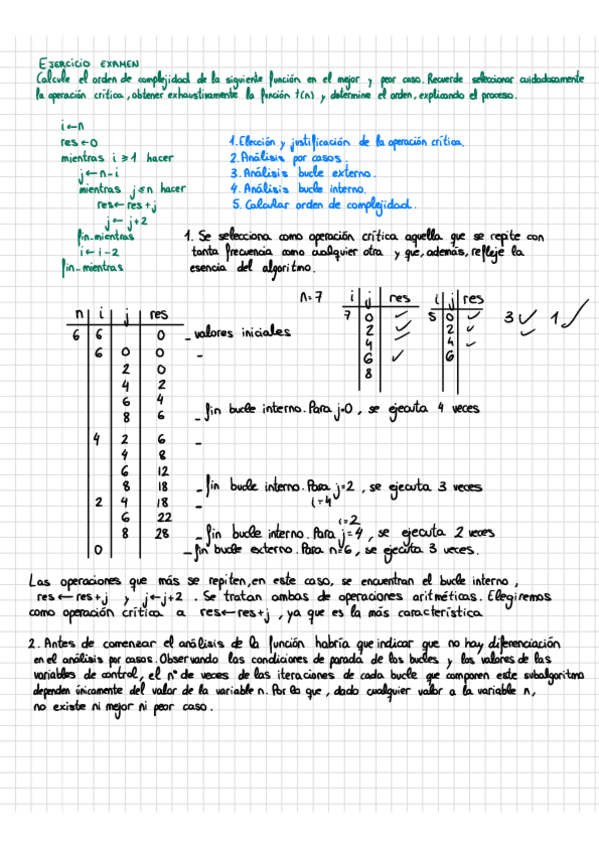 EJERCICIO EXAMEN
Calcule el orden de complejidad de la siguiente función en el mejor y peor caso. Recuerde seleccionar cuidadosamente
la operación crítica, obtener exhaustivamente la función t(n) y determine el orden, explicando el proceso.
i←n
res←0
mientras i≥1 hacer
j←n-i
mientras j≤n hacer
res←res+j
j←j+2
fin-mientras
i←i-2
fin-mientras
1. Elección y justificación de la operación crítica.
2. Análisis por casos.
3. Análisis bucle externo.
4. Análisis bucle interno.
5. Calcular orden de complejidad.
1. Se selecciona como operación crítica aquella que se repite con
tanta frecuencia como cualquier otra y que, además, refleje la
esencia del algoritmo.
n i j res
6 6 0 - valores iniciales
6 0 0 -
2 0
4 2
6 4
8 6 - fin bucle interno. Para j=0, se ejecuta 4 veces
4 2 6 -
4 8
6 12
8 18 - fin bucle interno. Para j=2, se ejecuta 3 veces
i=4
2 4 18 -
6 22
i=2
8 28 - fin bucle interno. Para j=4, se ejecuta 2 veces
0 - fin bucle externo. Para n=6, se ejecuta 3 veces.
n=7
i j res
7 0 ✓
2 ✓
4 ✓
6 ✓
8
i j res
5 0 ✓
2 ✓
4 ✓
6
3 ✓ 1 ✓
Las operaciones que más se repiten, en este caso, se encuentran el bucle interno,
res←res+j y j←j+2. Se tratan ambas de operaciones aritméticas. Elegiremos
como operación crítica a res←res+j, ya que es la más característica
2. Antes de comenzar el análisis de la función habría que indicar que no hay diferenciación
en el análisis por casos. Observando las condiciones de parada de los bucles y los valores de las
variables de control, el nº de veces de las iteraciones de cada bucle que componen este subalgoritmo
dependen únicamente del valor de la variable n. Por lo que, dado cualquier valor a la variable n,
no existe ni mejor ni peor caso.